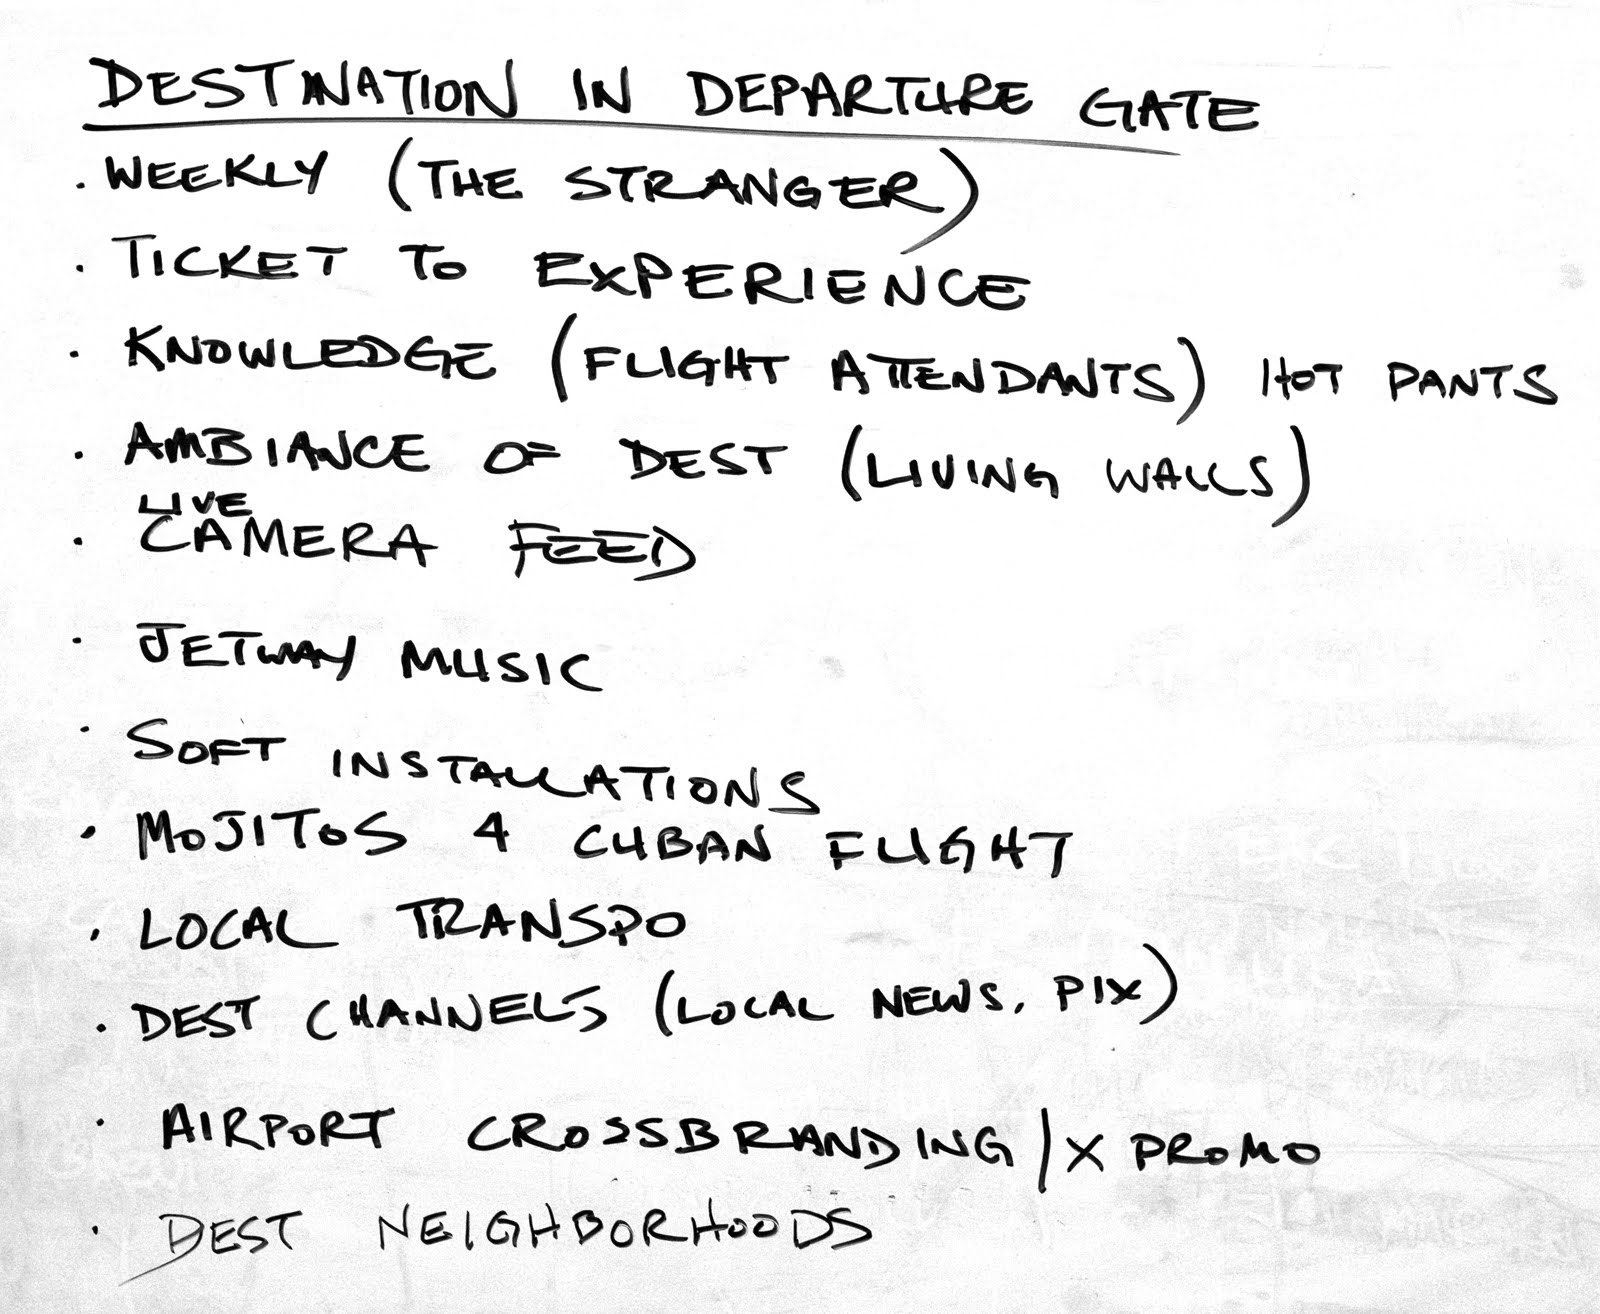 DESTINATION IN DEPARTURE GATE
· WEEKLY (THE STRANGER)
· TICKET TO EXPERIENCE
· KNOWLEDGE (FLIGHT ATTENDANTS) HOT PANTS
· AMBIANCE OF DEST (LIVING WALLS)
LIVE
· CAMERA FEED
· JETWAY MUSIC
· SOFT INSTALLATIONS
· MOJITOS 4 CUBAN FLIGHT
· LOCAL TRANSPO
· DEST CHANNELS (LOCAL NEWS, PIX)
· AIRPORT CROSSBRANDING / X PROMO
· DEST NEIGHBORHOODS